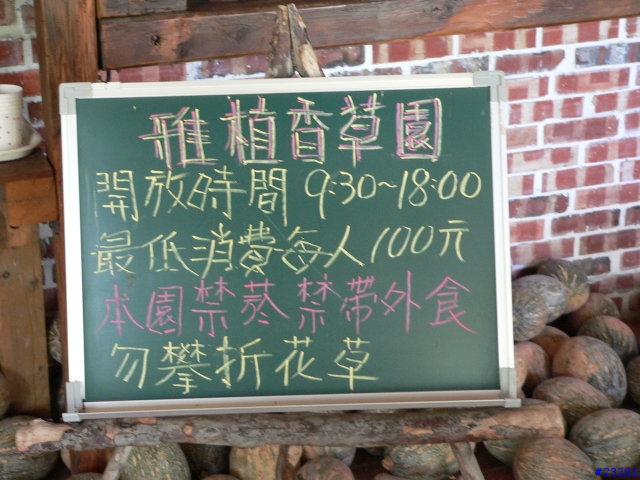 雅植香草園
開放時間 9:30~18:00
最低消費每人100元
本園禁菸禁帶外食
勿攀折花草